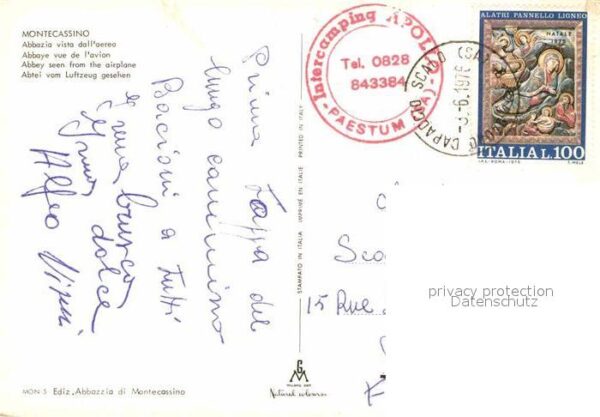 MONTECASSINO
Abbazia vista dall'aereo
Abbaye vue de l'avion
Abbey seen from the airplane
Abtei vom Luftzeug gesehen
Prima Tappa del
lungo cammino
Bacioni a Tutti
dolce
Alfeo
Intercamping APOLLO (SA)
Tel. 0828
843384
-PAESTUM
CAPACCIO SCALO (SA)
-3.6.1976
ALATRI PANNELLO LIGNEO
NATALE
ITALIA L.100
I.P.S.-ROMA-1975
T. MELE
STAMPATO IN ITALIA IMPRIMÉ EN ITALIE PRINTED IN ITALY
15 Rue
privacy protection
Datenschutz
GM
MILANO
MON 5 Ediz. Abbazzia di Montecassino